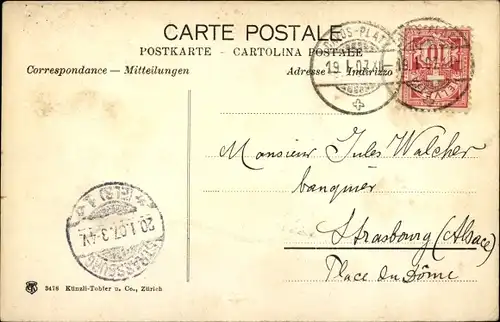 CARTE POSTALE
POSTKARTE - CARTOLINA POSTALE
Correspondance — Mitteilungen
Adresse — Indirizzo
19. I. 07. XI
10
Monsieur Jules Walcher
banquier
Strasbourg (Alsace)
Place du Dôme
20.1.07.3-4V.
STRASSBURG
3476 Künzli-Tobler u. Co., Zürich